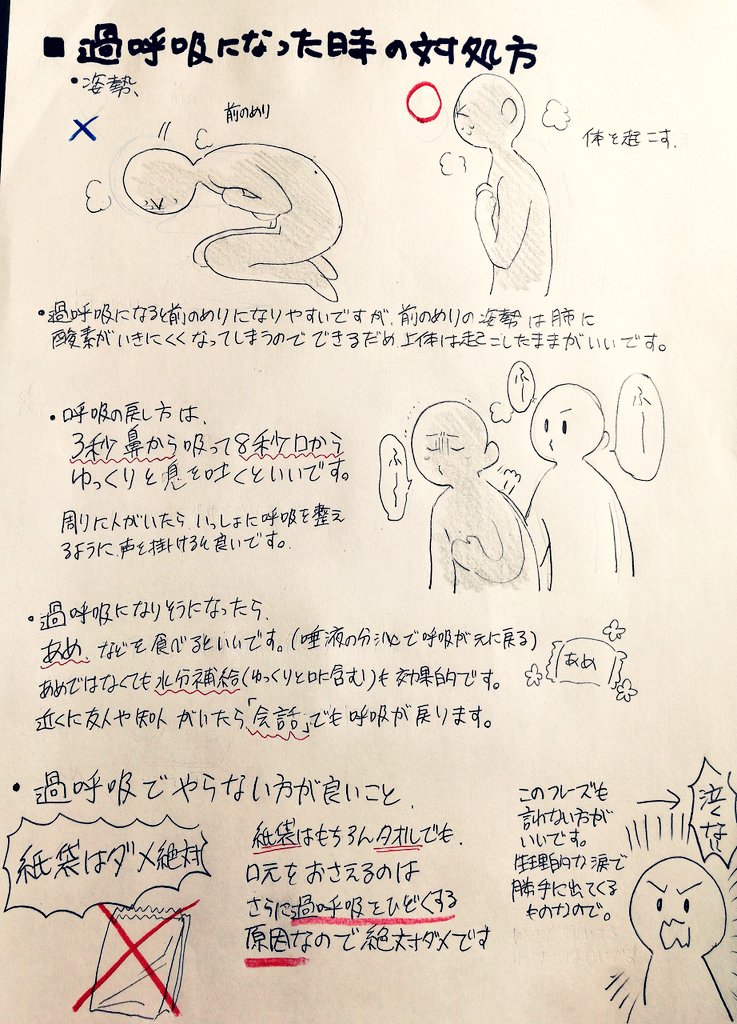 ■過呼吸になった時の対処方
・姿勢、
×
前のめり
○
体を起こす.
・過呼吸になると前のめりになりやすいですが、前のめりの姿勢は肺に
酸素がいきにくくなってしまうのでできるだめ上体は起こしたままがいいです。
・呼吸の戻し方は、
3秒鼻から吸って8秒口から
ゆっくりと息を吐くといいです。
周りに人がいたら、いっしょに呼吸を整え
るように声を掛けると良いです。
ふーー
ふー
ふーー
・過呼吸になりそうになったら、
あめ、などを食べるといいです。(唾液の分泌で呼吸が元に戻る)
あめではなくても水分補給(ゆっくりと口に含む)も効果的です。
近くに友人や知人がいたら「会話」でも呼吸が戻ります。
あめ
・過呼吸でやらない方が良いこと、
紙袋はダメ絶対
紙袋はもちろんタオルでも、
口元をおさえるのは
さらに過呼吸をひどくする
原因なので絶対ダメです
このフレーズも
言わない方が
いいです。
生理的な涙で
勝手に出てくる
ものなので。
→
泣くな!